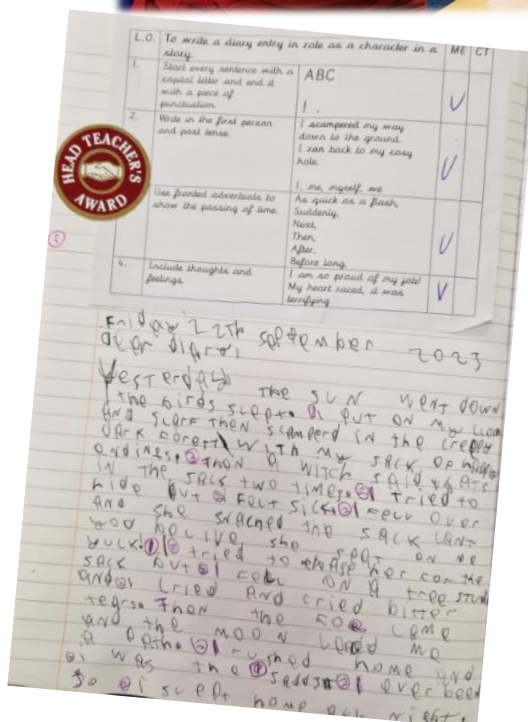 L.O. To write a diary entry in role as a character in a story. ME CT
1. Start every sentence with a capital letter and end it with a piece of punctuation
ABC
! .
2. Write in the first person and past tense.
I scampered my way down to the ground.
I ran back to my cosy hole.
I, me, myself, we
Use fronted adverbials to show the passing of time.
As quick as a flash,
Suddenly,
Next,
Then,
After,
Before long,
4. Include thoughts and feelings.
I am so proud of my job!
My heart raced, it was terrifying
HEAD TEACHER'S AWARD
Friday 22th September 2023
dear diary,
Yesterday the sun went down
the birds slept. I put on my
and scarf then scamperd in the creepy
dark forest with my sack of happy
endings. Then a witch said
in the sack two times. I tried to
hide but I felt sick. I fell over
and she snached the sack cant
you belive she spat on me
yuck! I tried to her
sack but I fell on a tree stum
and I cried and cried bitter
tears. Then the came
and the moon me
a path. I rushed home and
i was the I ever been
so i slept home